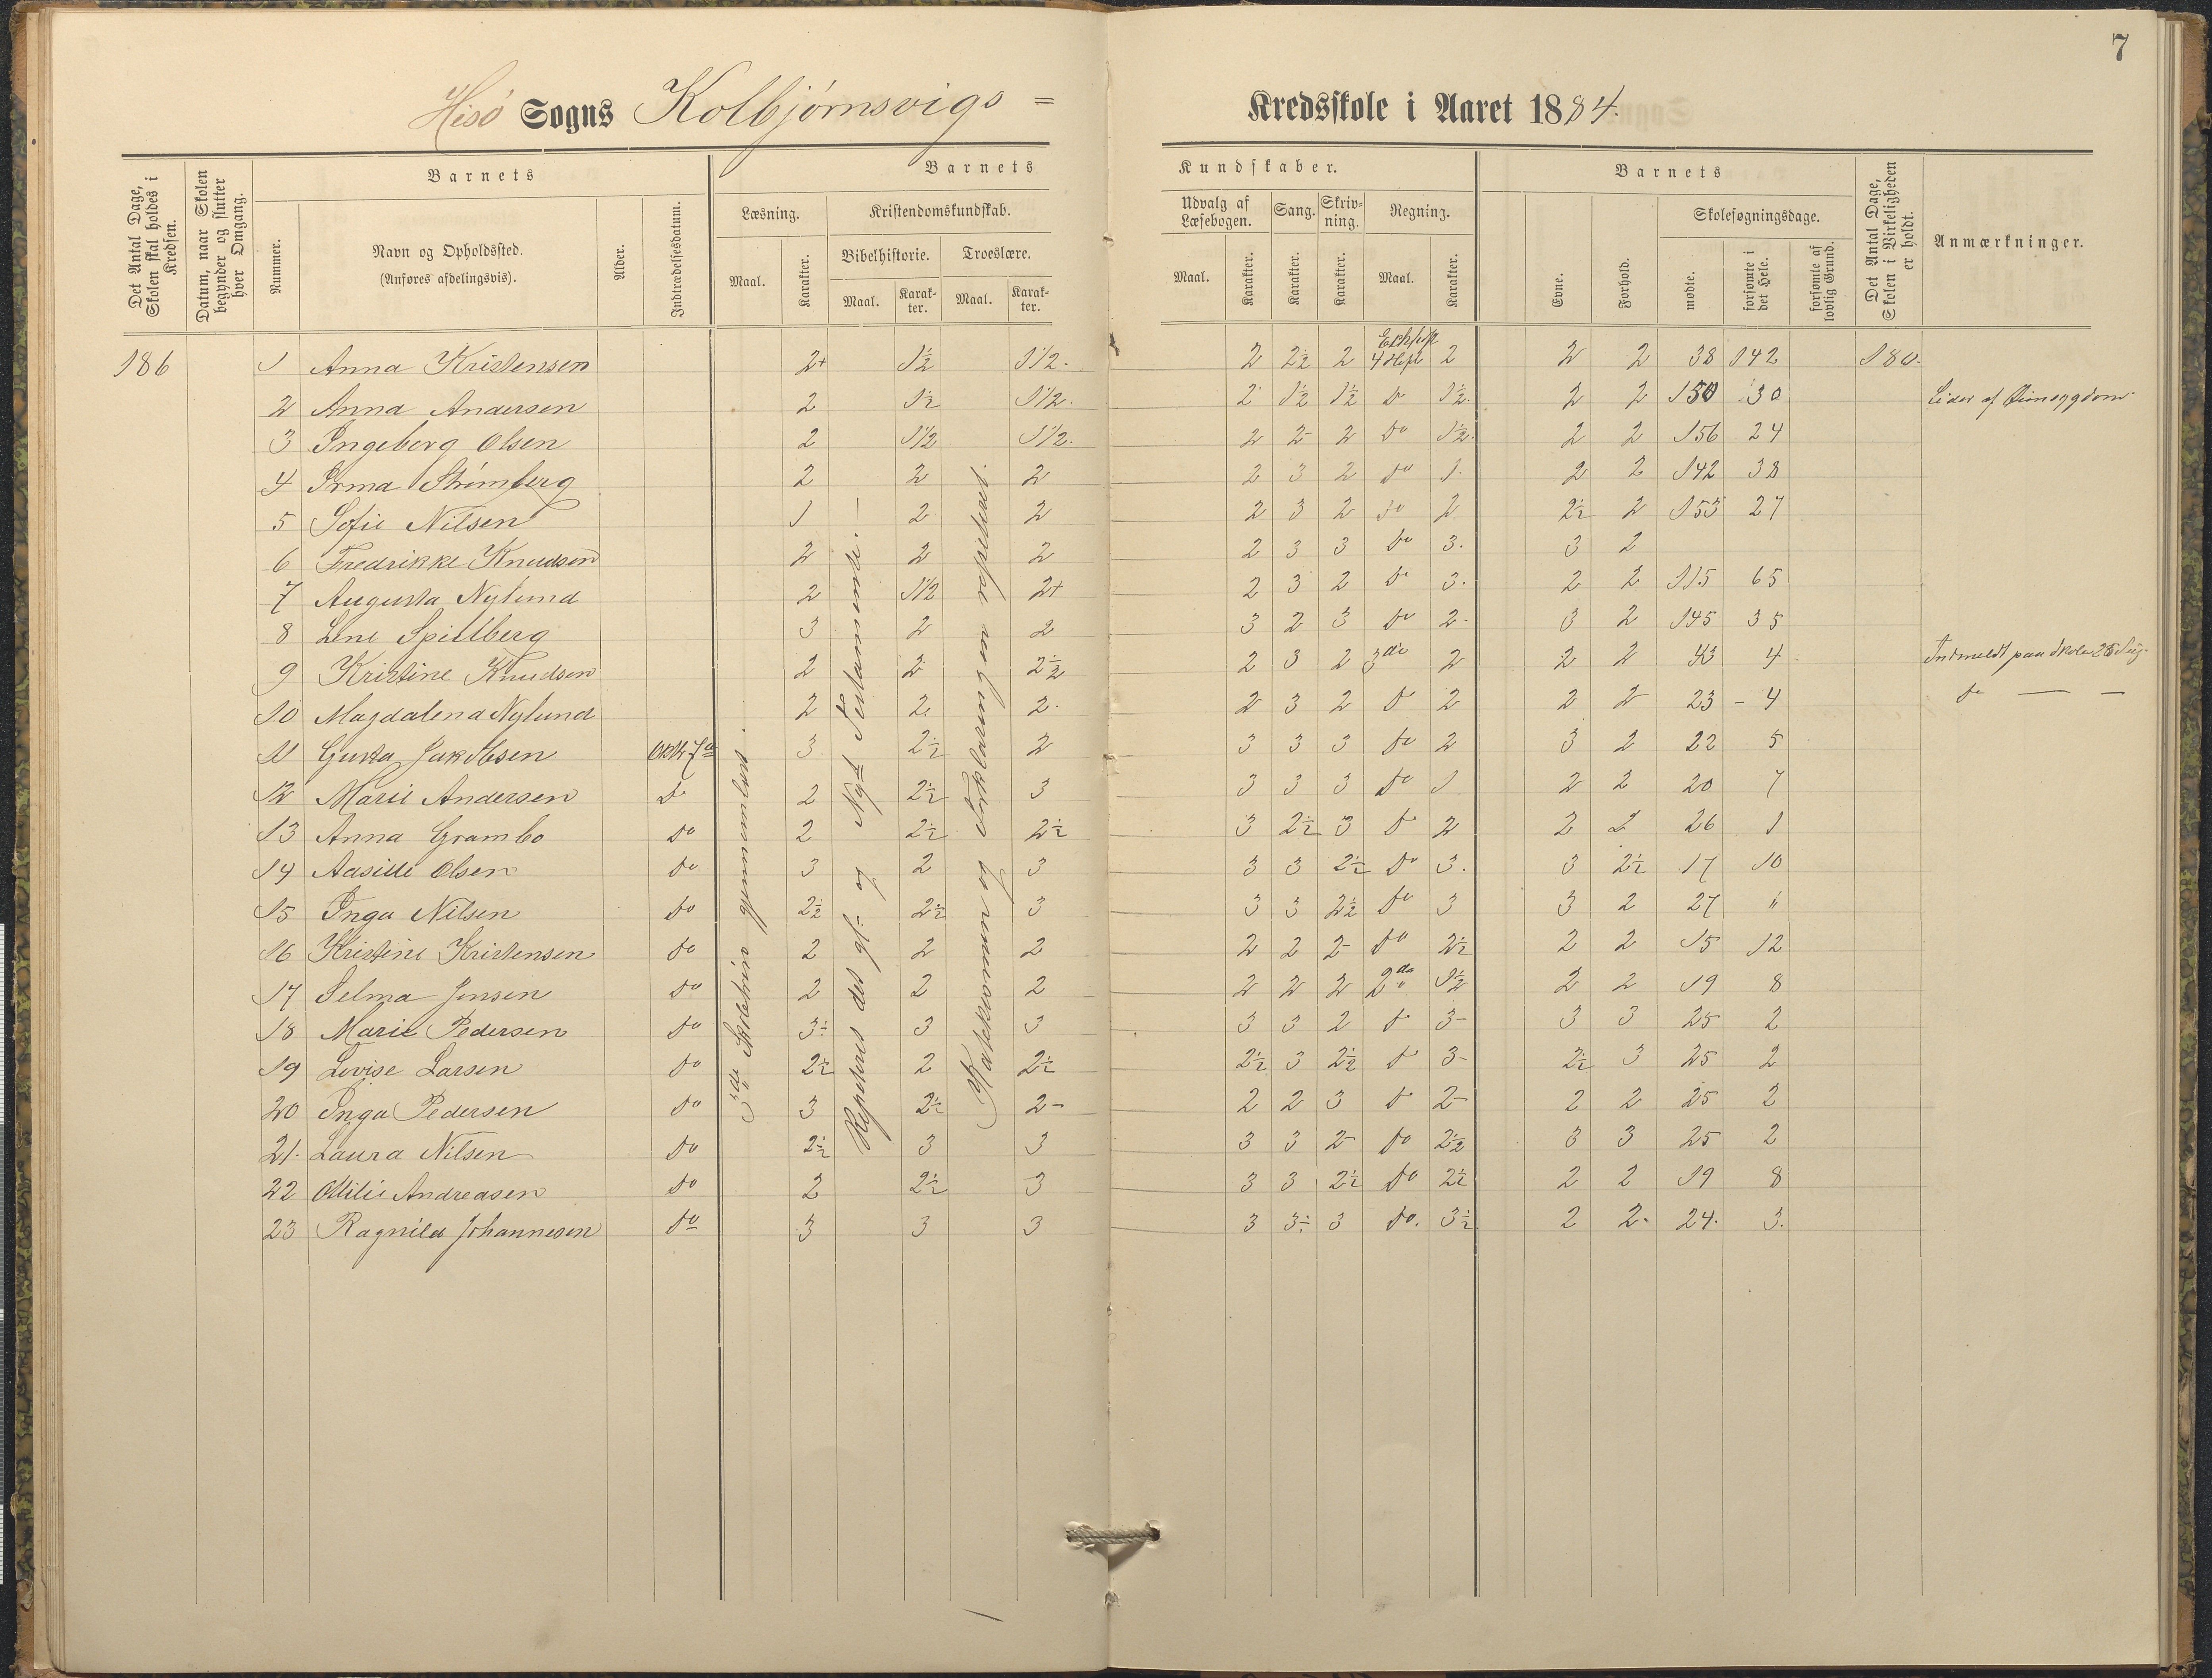 7
Hisö Sogns Kolbjörnsvigs = Kredsskole i Aaret 1884.
Det Antal Dage, Skolen skal holdes i Kredsen.
Datum, naar Skolen begynder og slutter hver Omgang.
Barnets
Nummer.
Navn og Opholdssted.
(Anføres afdelingsvis).
Alder.
Indtrædelsesdatum.
Barnets Kundskaber.
Læsning.
Maal. Karakter.
Kristendomskundskab.
Bibelhistorie. Troeslære.
Maal. Karakter. Maal. Karakter.
Udvalg af Læsebogen.
Maal. Karakter.
Sang.
Karakter.
Skrivning.
Karakter.
Regning.
Maal. Karakter.
Barnets
Evne. Forhold.
Skolesøgningsdage.
mødte. forsømte i det Hele. forsømte af lovlig Grund.
Det Antal Dage, Skolen i Virkeligheden er holdt.
Anmærkninger.
186 1 Anna Kristensen 2+ 1½ 1½. 2 2½ 2 4 Heft 2 2 2 38 142 180.
2 Anna Andersen 2 1½ 1½. 2 1½ 1½ do 1½. 2 2 150 30 Lider af
3 Ingeborg Olsen 2 1½ 1½. 2 2- 2 do 1½. 2 2 156 24
4 Irma Strömberg 2 2 2 2 3 2 do 1. 2 2 142 38
5 Sofie Nilsen 1 2 2 2 3 2 do 2 2½ 2 153 27
6 Fredrikke Knudsen 2 2 2 2 3 3 do 3. 3 2
7 Augusta Nylund 2 1½ 2+ 2 3 2 do 3. 2 2 115 65
8 Lene Spillberg 3 2 2 3 2 3 do 2- 3 2 145 35
9 Kristine Knudsen 2 2 2½ 2 3 2 3die 2 2 2 43 4 Indmeldt paa Skolen 25 Aug.
10 Magdalena Nylund 2 2 2. 2 3 2 do 2 2 2 23 - 4 do — —
11 Gusta Jakobsen Oktb 7de 3 2½ 2 3 3 3 do 2 3 2 22 5
12 Marie Andersen do 2 2½ 3 3 3 3 do 1 2 2 20 7
13 Anna Grambo do 2 2½ 2½ 3 2½ 3 do 2 2 2 26 1
14 Aasille Olsen do 3 2 3 3 3 2½ do 3. 3 2½ 17 10
15 Inga Nilsen do 2½ 2½ 3 3 3 2½ do 3 3 2 27 "
16 Kristine Kristensen do 2 2 2 2 2 2- do 2½ 2 2 15 12
17 Selma Jensen do 2 2 2 2 2 2 2de 1½ 2 2 19 8
18 Marie Pedersen do 3÷ 3 3 3 3 2 do 3- 3 3 25 2
19 Lovise Larsen do 2½ 2 2½ 2½ 3 2½ do 3- 2½ 3 25 2
20 Inga Pedersen do 3 2½ 2- 2 2 3 do 2- 2 2 25 2
21. Laura Nilsen do 2½ 3 3 3 3 2- do 2½ 3 3 25 2
22 Ottilie Andreasen do 2 2½ 3 3 3 2½ do 2½ 2 2 19 8
23 Ragnild Johannesen do 3 3 3 3 3÷ 3 do. 3½ 2 2. 24. 3.
3die Skoletrin gjennemlæst.
Repeteret det gl= og Nyt Testamente. —
Katekismen og Forklaringen repeteret.